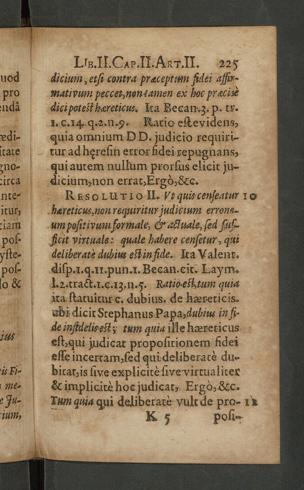 LIB.II.CAP.II.ART.II. 225
dicium, etsi contra præceptum fidei affir-
mativum peccet, non tamen ex hoc præcisè
dici potest hæreticus. Ita Becan.3. p. tr.
1. c.14. q.2. n.9. Ratio est evidens,
quia omnium DD. judicio requiri-
tur ad hęresin error fidei repugnans,
qui autem nullum prorsus elicit ju-
dicium, non errat, Ergò, &c.
RESOLUTIO II. Ut quis censeatur 10
hæreticus, non requiritur judicium errone-
um positivum formale, & actuale, sed suf-
ficit virtuale: quale habere censetur, qui
deliberatè dubius est in fide. Ita Valent.
disp.1. q.11. pun.1. Becan. cit. Laym.
l.2. tract.1. c.13. n.5. Ratio est, tum quia
ita statuitur c. dubius. de hæreticis.
ubi dicit Stephanus Papa, dubius in fi-
de infidelis est; tum quia ille hæreticus
est, qui judicat propositionem fidei
esse incertam, sed qui deliberatè du-
bitat, is sive explicitè sive virtualiter
& implicitè hoc judicat, Ergò, &c.
Tum quia qui deliberatè vult de pro- 11
K 5 posi-
uod
pro
endâ
rædi-
itate
gno-
circa
inte-
itur,
etiam
pos-
yste-
pos-
lo &
ius
is Fi-
me-
e Ju-
ium,